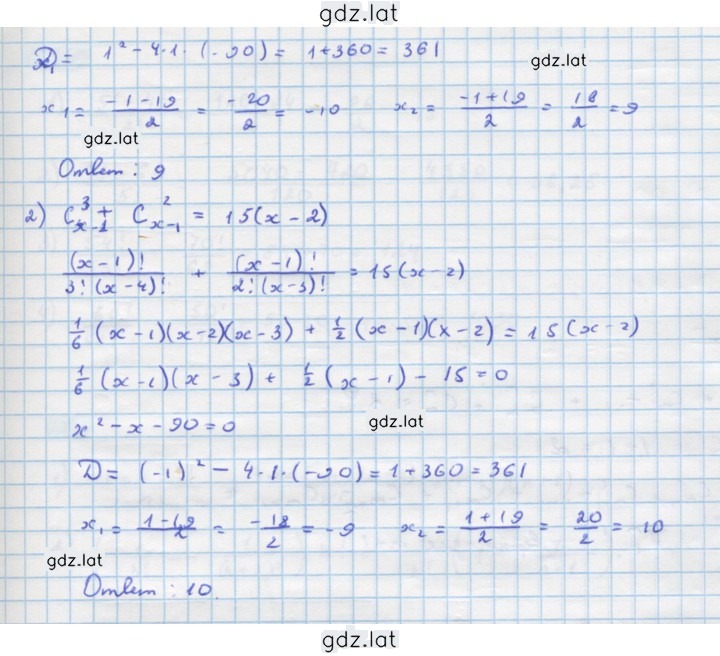 gdz.lat
D = 1² - 4·1·(-90) = 1+360 = 361
gdz.lat
x₁ = (-1-19)/2 = -20/2 = -10 x₂ = (-1+19)/2 = 18/2 = 9
gdz.lat
Ответ: 9
2) C³ₓ₋₁ + C²ₓ₋₁ = 15(x-2)
(x-1)!/(3!(x-4)!) + (x-1)!/(2!(x-3)!) = 15(x-2)
1/6 (x-1)(x-2)(x-3) + 1/2 (x-1)(x-2) = 15(x-2)
1/6 (x-1)(x-3) + 1/2 (x-1) - 15 = 0
x² - x - 90 = 0
gdz.lat
D = (-1)² - 4·1·(-90) = 1+360 = 361
x₁ = (1-19)/2 = -18/2 = -9 x₂ = (1+19)/2 = 20/2 = 10
gdz.lat
Ответ: 10.
gdz.lat